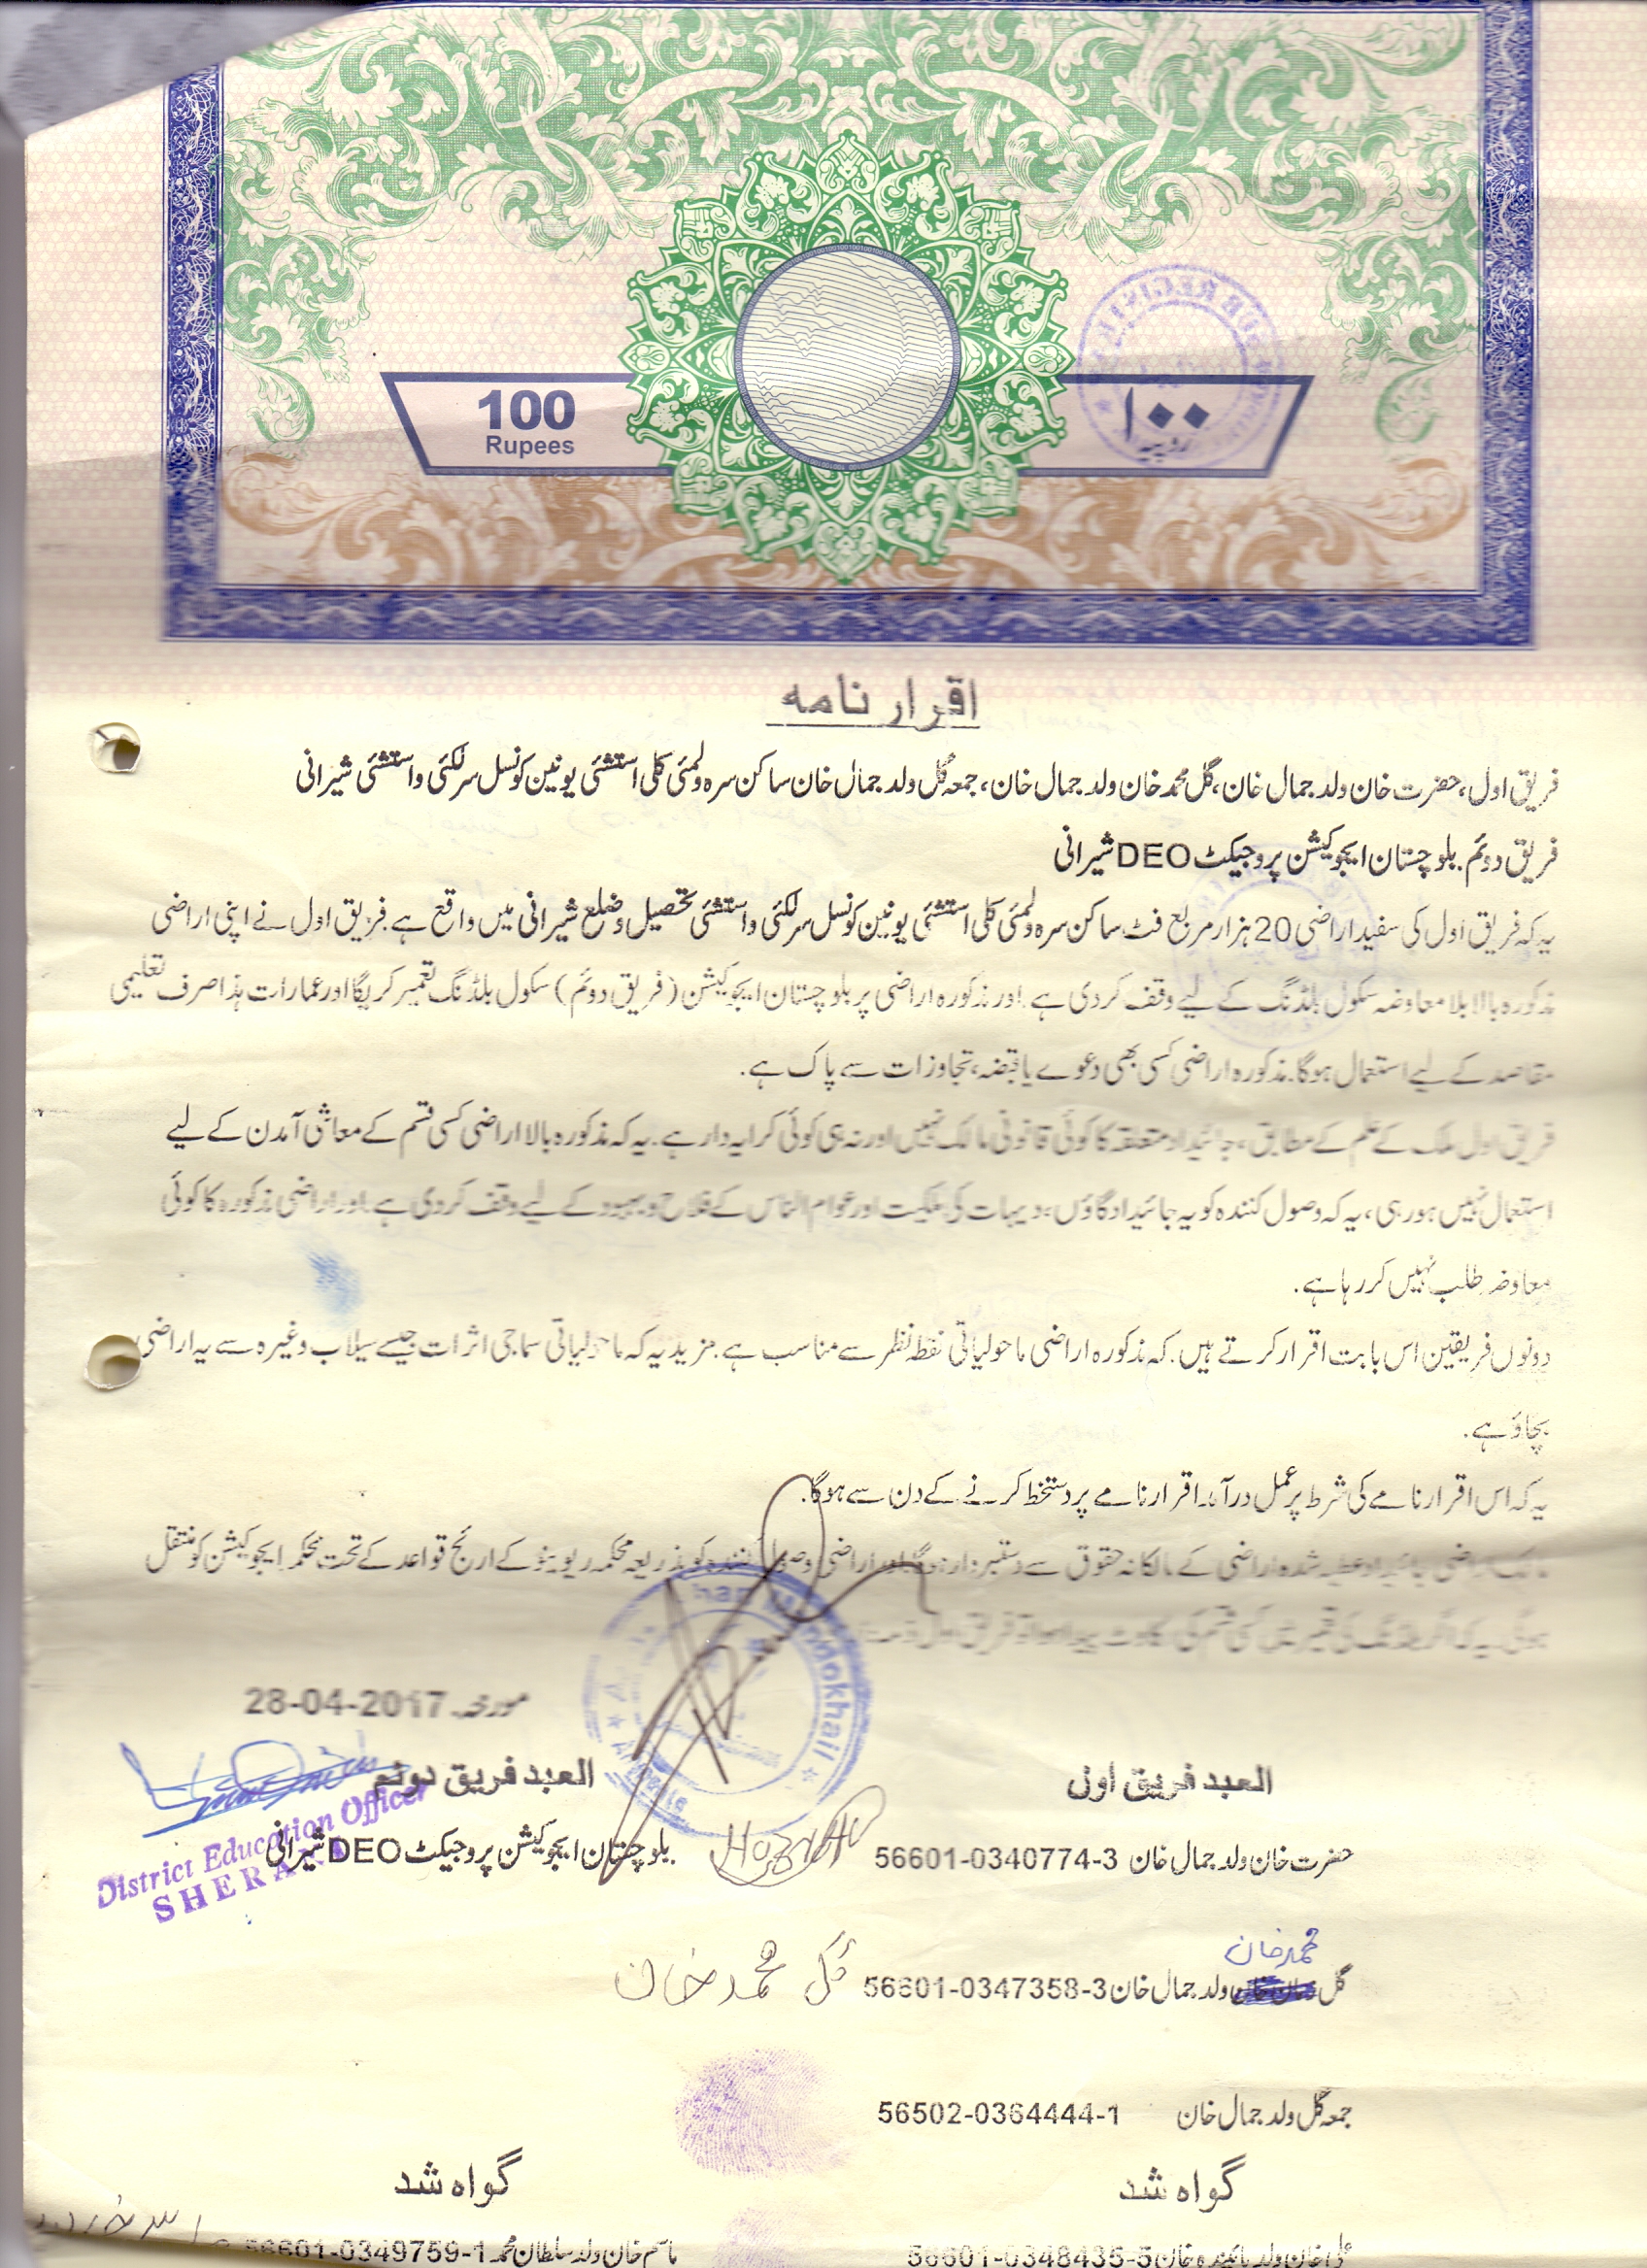 100
Rupees
۱۰۰
روپیہ
اقرار نامہ
فریق اول، حضرت خان ولد جمال خان، گل محمد خان ولد جمال خان، جمعہ گل ولد جمال خان ساکن سرہ ولمئی کلی استشئی یونین کونسل سرلکئی واستشئی شیرانی
فریق دوئم. بلوچستان ایجوکیشن پروجیکٹ DEO شیرانی
یہ کہ فریق اول کی سفید اراضی 20 ہزار مربع فٹ ساکن سرہ ولمئی کلی استشئی یونین کونسل سرلکئی واستشئی تحصیل وضلع شیرانی میں واقع ہے. فریق اول نے اپنی اراضی
مذکورہ بالا بلا معاوضہ سکول بلڈنگ کے لیے وقف کردی ہے. اور مذکورہ اراضی پر بلوچستان ایجوکیشن (فریق دوئم) سکول بلڈنگ تعمیر کریگا اور عمارات ہذا صرف تعلیمی
مقاصد کے لیے استعمال ہوگا. مذکورہ اراضی کسی بھی دعوے یا قبضہ، تجاوزات سے پاک ہے.
فریق اول ملک کے علم کے مطابق، جائیداد متعلقہ کا کوئی قانونی مالک نہیں اور نہ ہی کوئی کرایہ دار ہے. یہ کہ مذکورہ بالا اراضی کسی قسم کے معاشی آمدن کے لیے
استعمال نہیں ہورہی، یہ کہ وصول کنندہ کو یہ جائیداد گاؤں، دیہات کی ملکیت اور عوام الناس کے فلاح و بہبود کے لیے وقف کردی ہے. اور اراضی مذکورہ کا کوئی
معاوضہ طلب نہیں کررہا ہے.
دونوں فریقین اس بابت اقرار کرتے ہیں. کہ مذکورہ اراضی ماحولیاتی نقطہ نظر سے مناسب ہے. مزید یہ کہ ماحولیاتی سماجی اثرات جیسے سیلاب وغیرہ سے یہ اراضی
بچاؤ ہے.
یہ کہ اس اقرار نامے کی شرط پر عمل درآمد اقرار نامے پر دستخط کرنے کے دن سے ہوگا.
مالک اراضی جائیداد عطیہ شدہ اراضی کے مالکانہ حقوق سے دستبردار ہوگا اور اراضی وصول کنندہ کو بذریعہ محکمہ ریوینو کے ارئج قواعد کے تحت محکمہ ایجوکیشن کو منتقل
ہوئی. یہ کہ اگر بلڈنگ کی تعمیر میں کسی قسم کی رکاوٹ پیدا ہوا تو فریق اول
مورخہ 28-04-2017
العبد فریق اول
العبد فریق دوئم
District Education Officer
SHERANI
حضرت خان ولد جمال خان 56601-0340774-3
بلوچستان ایجوکیشن پروجیکٹ DEO شیرانی
محمد خان
گل ولد جمال خان 56601-0347358-3
گل محمد خان
جمعہ گل ولد جمال خان 56502-0364444-1
گواہ شد
گواہ شد
56601-0348435-5
قاسم خان ولد سلطان محمد 56601-0349759-1